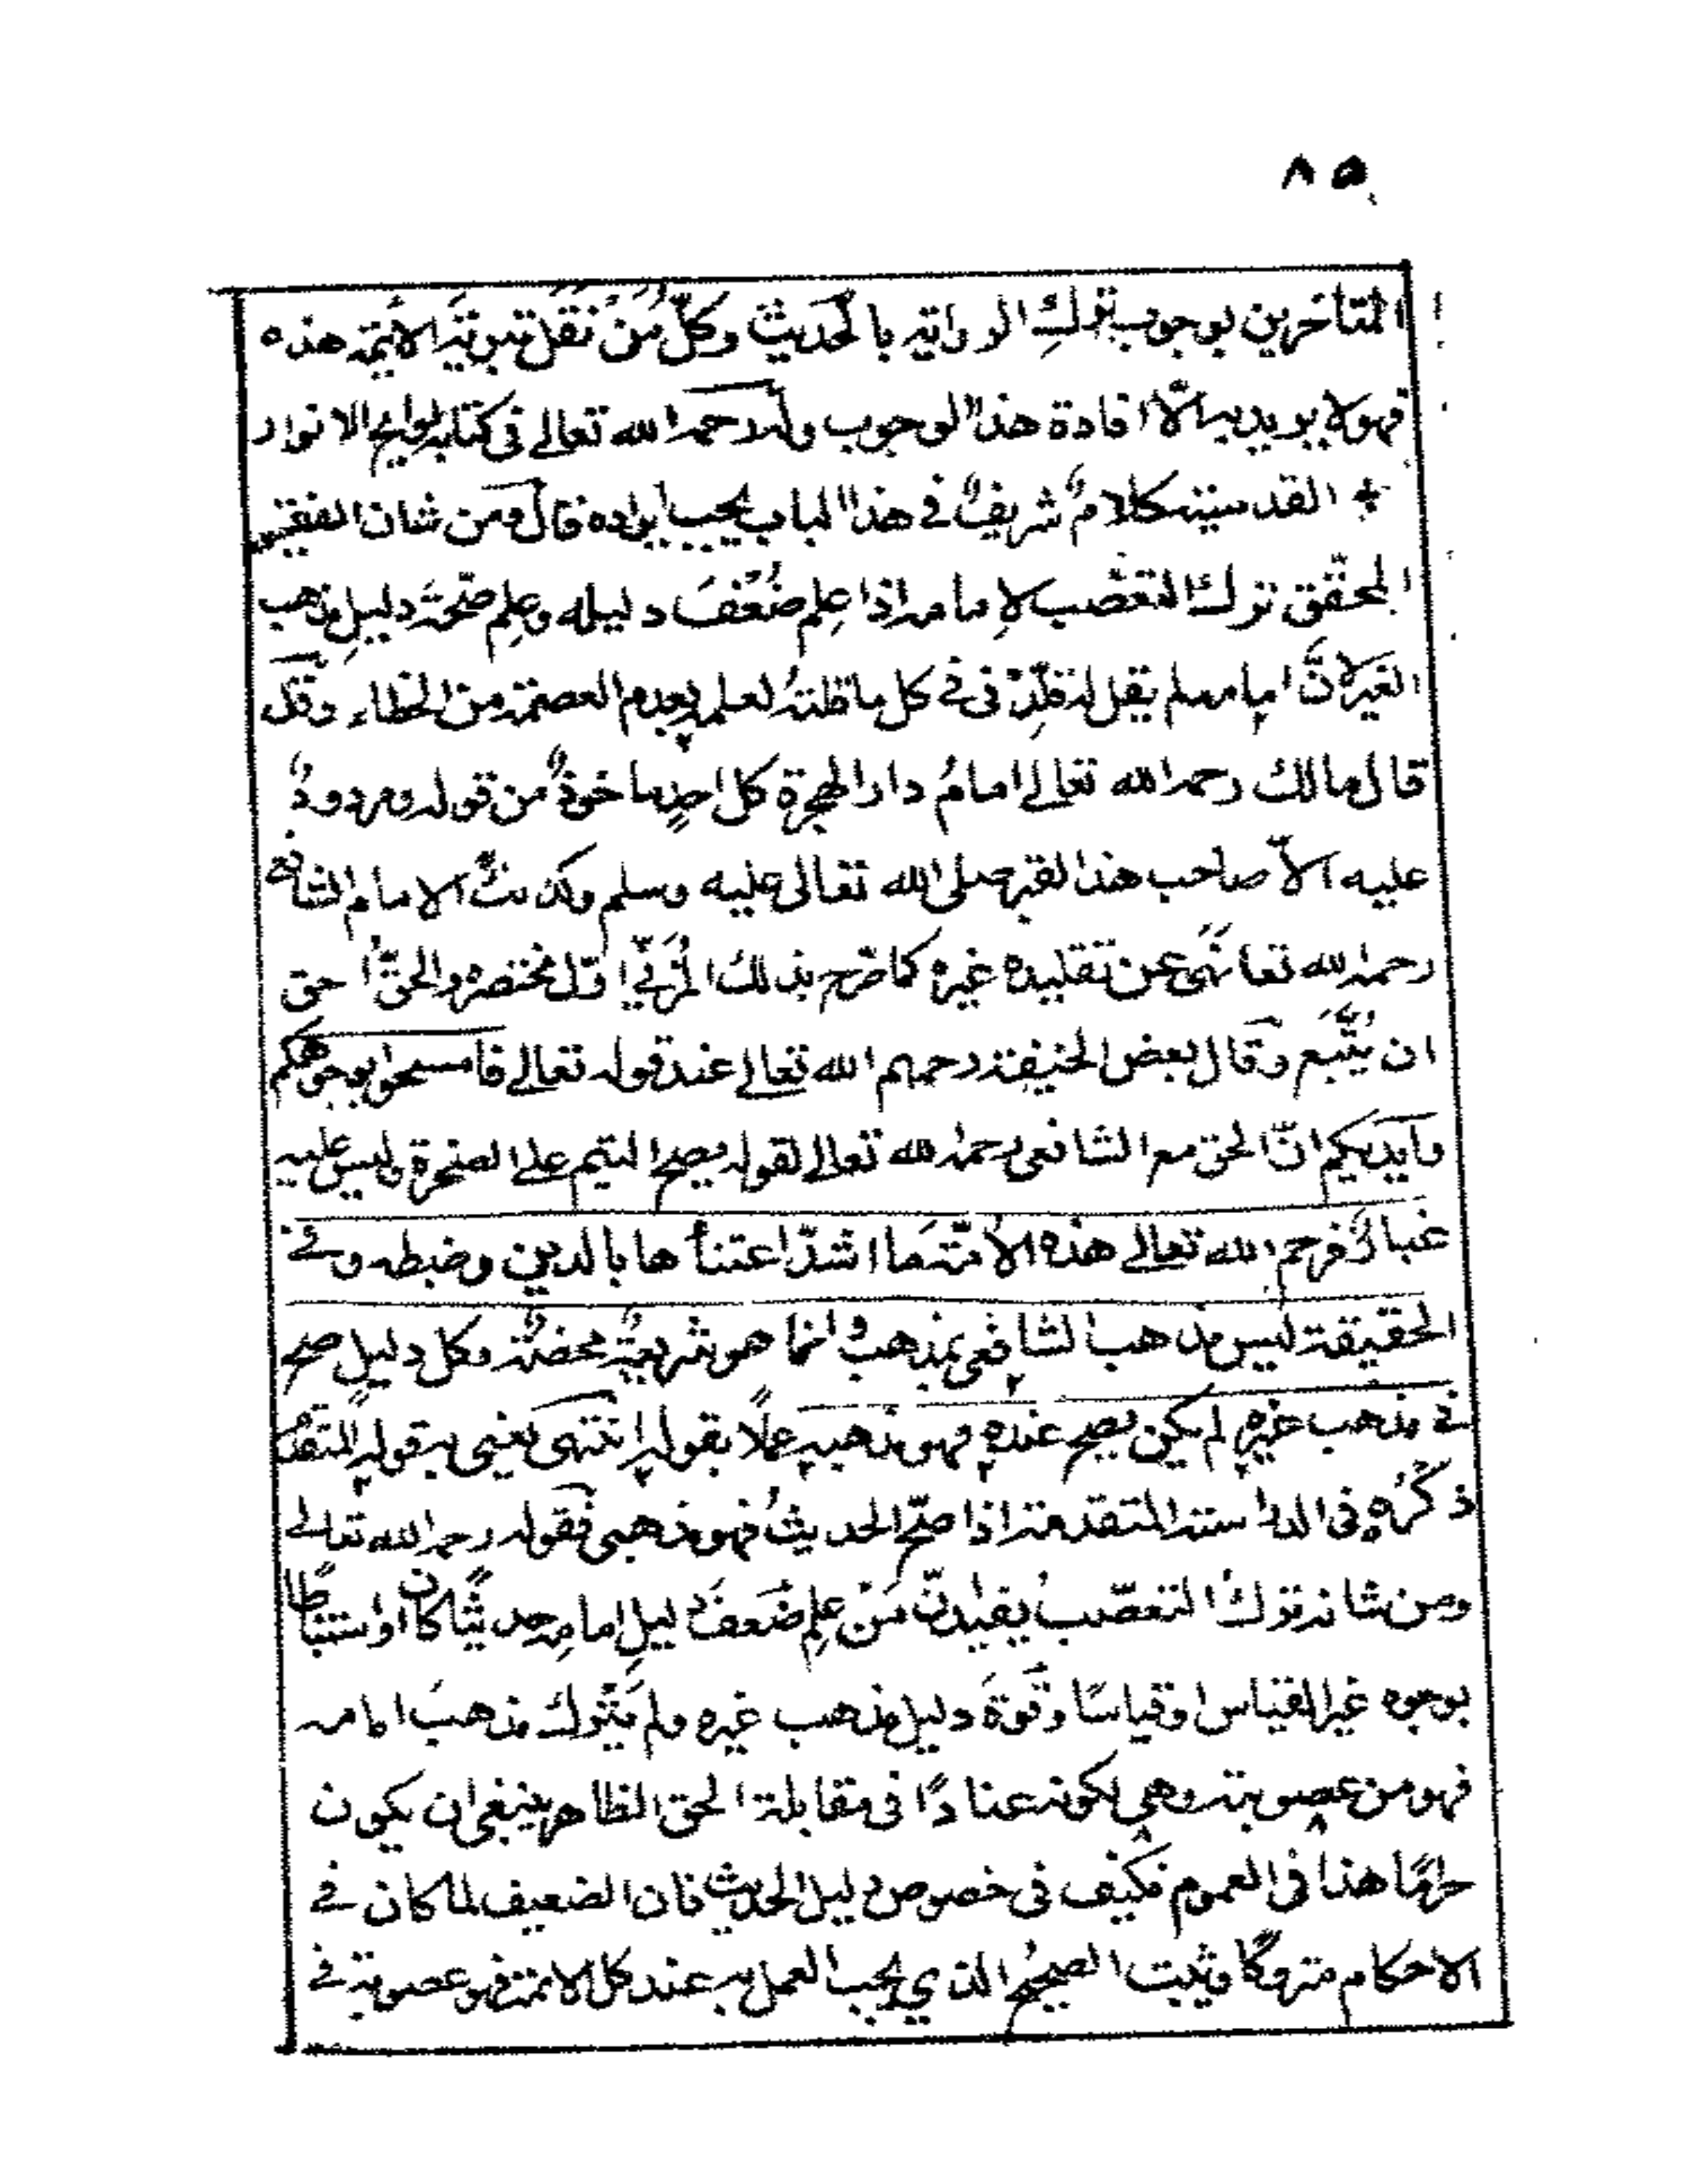 ٨٥
المتأخرين بوجوب تركِ الرواية بالحديث وكلُّ مَنْ نقل تبرئة الائمة هذه
فهو لا يريد به الّا افادة هذا الوجوب وله رحمه الله تعالى فى كتابه لوايح الانوار
القدسية كلامٌ شريفٌ فى هذا الباب يجب ايراده قال ومن شان الفقير
المحقّق ترك التعصّب لإمامه اذا عِلم ضُعْفَ دليله وعِلم صحّةَ دليلِ مذهب
الغير لانَّ امامه لم يقل له قلِّدْنى فى كل ما قلتهُ لعلمه بعدم العصمة من الخطاء وقد
قال مالك رحمه الله تعالى امامُ دار الهجرة كل احدٍ ماخوذٌ من قوله ومردودٌ
عليه الّا صاحب هذا القبر صلى الله تعالى عليه وسلم وكذلك الامام الشافعى
رحمه الله تعا نَهَى عن تقليده غيره كما صرّح بذلك المُزَنِّى اوّل مختصره والحقّ احق
ان يُتَّبَع وقال بعض الحنيفة رحمهم الله تعالى عند قوله تعالى فامسحوا بوجوهكم
وايديكم انّ الحق مع الشافعى رحمه الله تعالى لقوله يصح التيمم على الصخرة وليس عليه
غبارٌ فرحم الله تعالى هذه الأُمّةَ ما اشدّ اعتناأها بالدين وضبطه وفى
الحقيقة ليس مذهب الشافعى بمذهب وانما هو شريعةٌ محضةٌ وكل دليلٍ صح
فى مذهب غيره لم يكن يصح عنده فهو مذهبه عملًا بقوله انتهى يعنى به قوله المتقدّم
ذكرُه فى الدراسة المتقدمة اذا صحّ الحديثُ فهو مذهبى فقوله رحمه الله تعالى
ومن شانه تركُ التعصّب يفيد انّ مَنْ عِلم ضَعفَ دليلِ امامِه حديثًا كان او استنباطًا
بوجوه غير القياس او قياسًا وقوةَ دليل مذهب غيره ولم يَتْرك مذهبَ امامه
فهو من عصوبته وهى لكونه عنادًا فى مقابلة الحق الظاهر ينبغى ان يكون
حرامًا هذا فى العموم فكيف فى خصوص دليل الحديث فان الضعيف لما كان فى
الاحكام متروكًا وثبت الصحيحُ الذي يجب العمل به عند كل الائمة فهو عصوبة فى